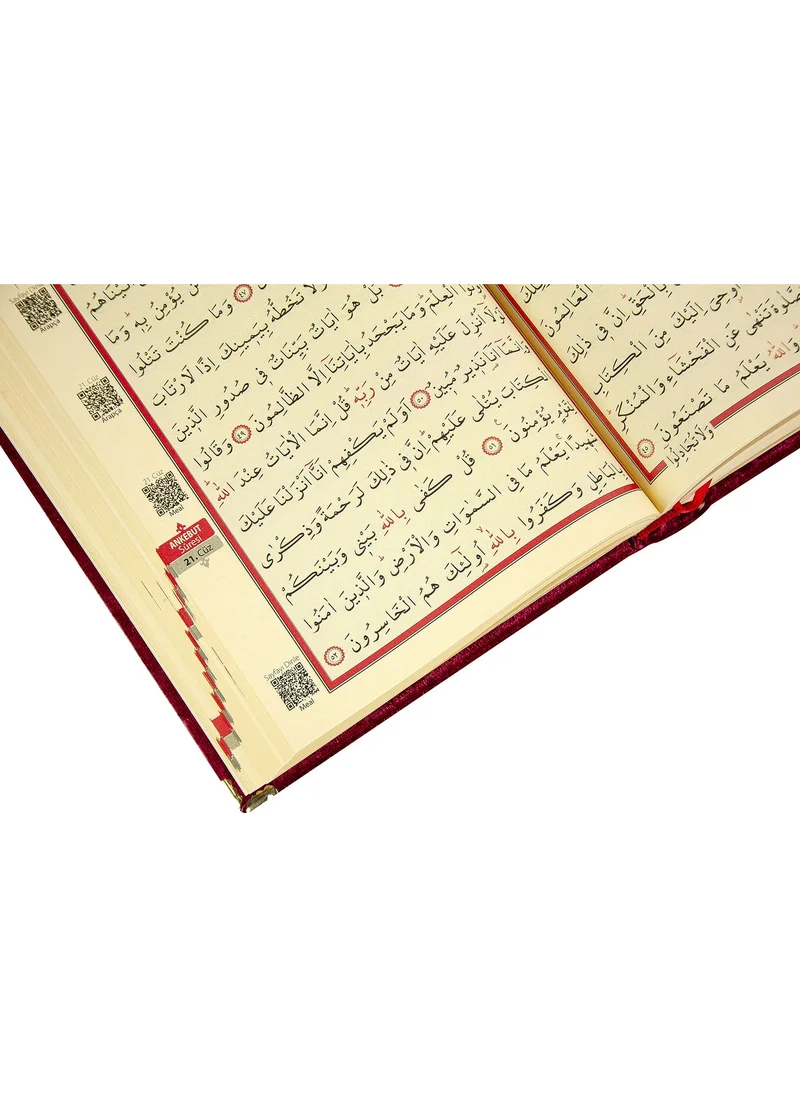 الْعَالِمُونَ
بِالْحَقِّ اِنَّ فٖى ذٰلِكَ
اُوحِىَ اِلَيْكَ مِنَ الْكِتَابِ
تَنْهٰى عَنِ الْفَحْشَٓاءِ وَالْمُنْكَرِ
وَاللّٰهُ يَعْلَمُ مَا تَصْنَعُونَ ٤٥
وَلَا تُجَادِلُٓوا
يُؤْمِنُ بِهٖ وَمَا
٤٧ وَمَا كُنْتَ تَتْلُوا
وَلَا تَخُطُّهُ بِيَمٖينِكَ اِذًا لَارْتَابَ
بَلْ هُوَ اٰيَاتٌ بَيِّنَاتٌ فٖى صُدُورِ الَّذٖينَ
اُو۫تُوا الْعِلْمَ وَمَا يَجْحَدُ بِاٰيَاتِنَٓا اِلَّا الظَّالِمُونَ ٤٩ وَقَالُوا
لَوْلَٓا اُنْزِلَ عَلَيْهِ اٰيَاتٌ مِنْ رَبِّهٖ قُلْ اِنَّمَا الْاٰيَاتُ عِنْدَ اللّٰهِ
وَاِنَّمَٓا اَنَا نَذٖيرٌ مُبٖينٌ ٥٠ اَوَلَمْ يَكْفِهِمْ اَنَّٓا اَنْزَلْنَا عَلَيْكَ
الْكِتَابَ يُتْلٰى عَلَيْهِمْ اِنَّ فٖى ذٰلِكَ لَرَحْمَةً وَذِكْرٰى
يُؤْمِنُونَ ٥١ قُلْ كَفٰى بِاللّٰهِ بَيْنٖى وَبَيْنَكُمْ
شَهٖيدًا يَعْلَمُ مَا فِى السَّمٰوَاتِ وَالْاَرْضِ وَالَّذٖينَ اٰمَنُوا
بِالْبَاطِلِ وَكَفَرُوا بِاللّٰهِ اُو۬لٰٓئِكَ هُمُ الْخَاسِرُونَ ٥٢
Sayfayı Dinle
Arapça
21. Cüz
Arapça
21. Cüz
Meal
ANKEBUT
Sûresi
21. Cüz
Sayfayı Dinle
Meal